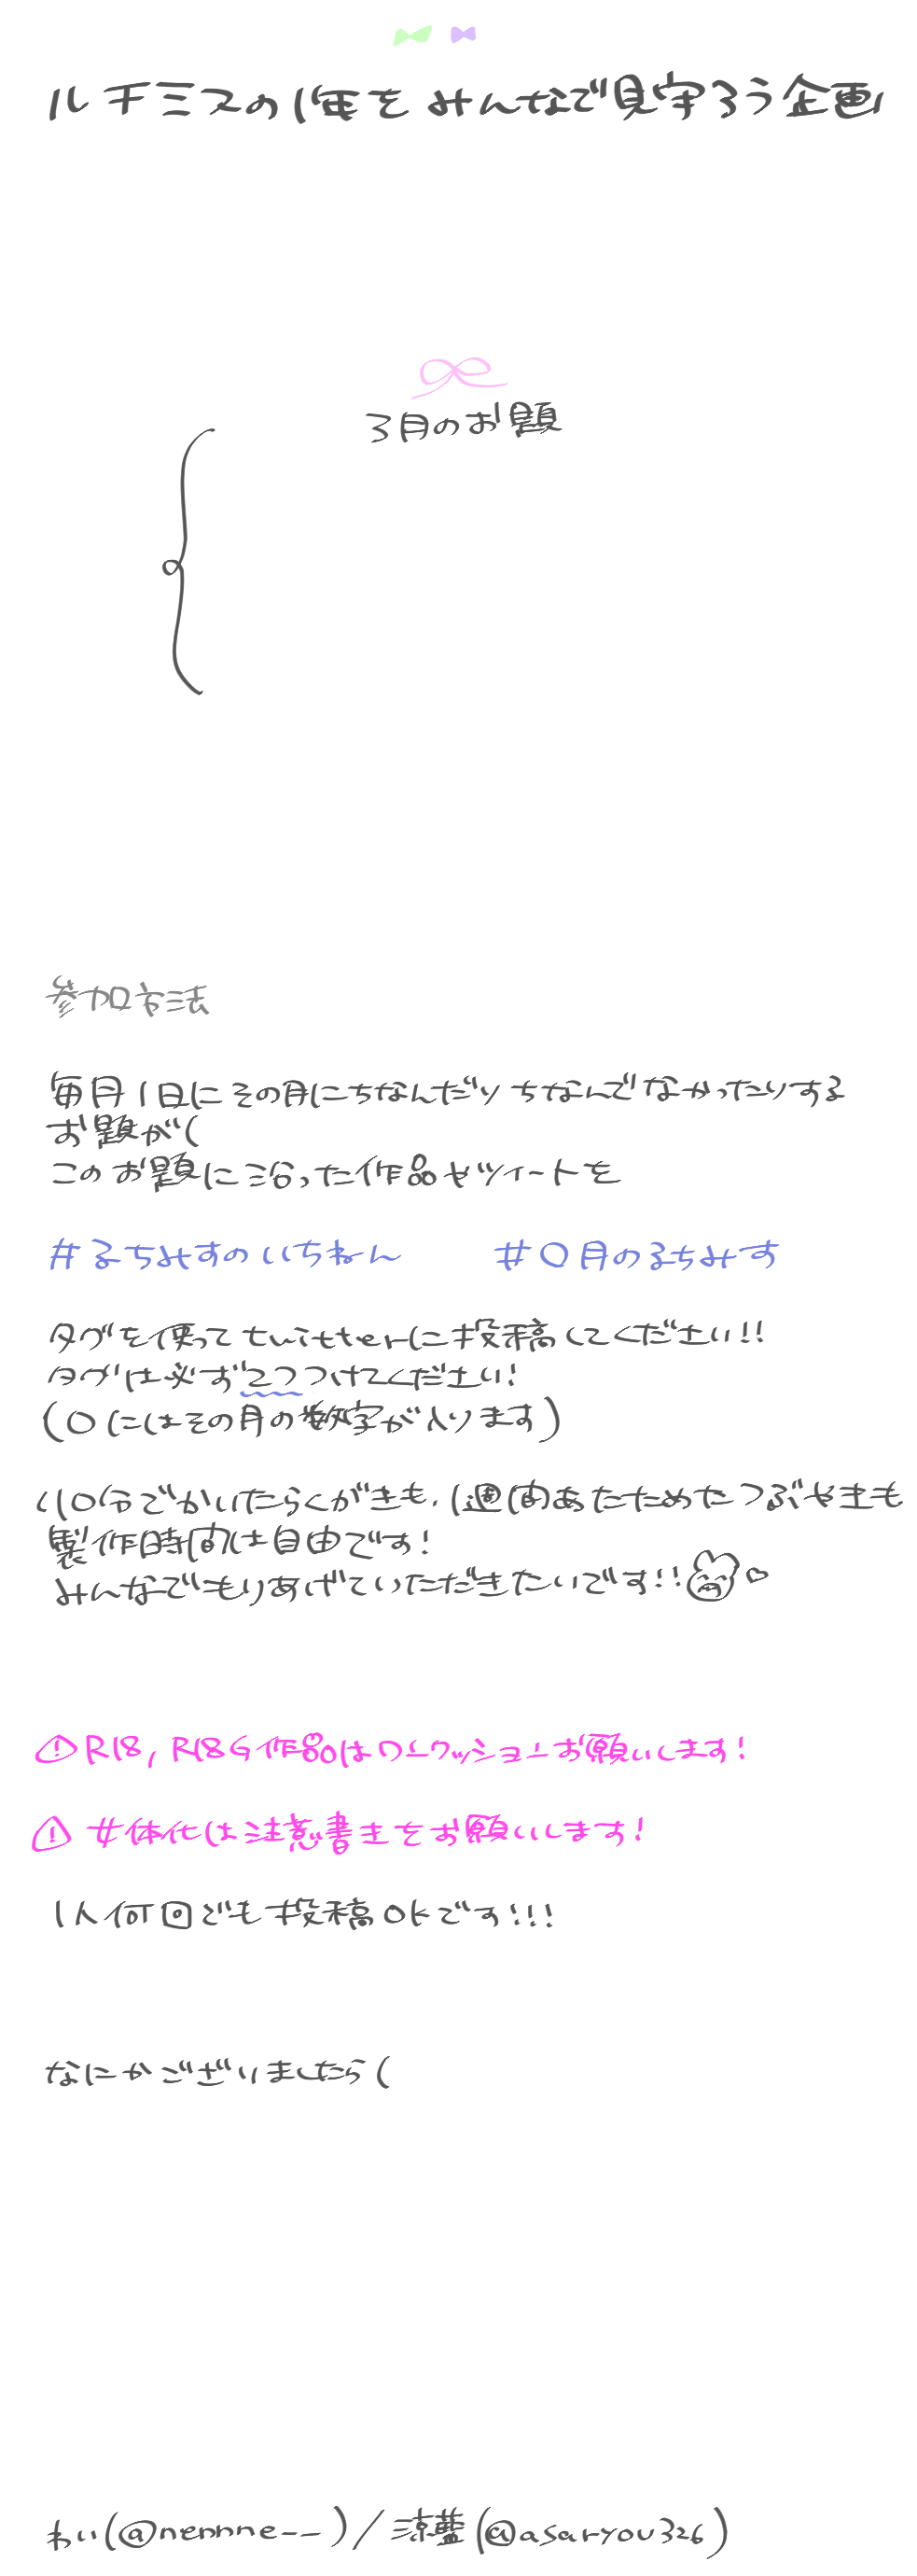 ルチミスの1年をみんなで見守ろう企画
3月のお題
参加方法
毎月1日にその月にちなんだりちなんでなかったりする
お題が(
このお題に沿った作品やツイートを
#るちみすのいちねん #〇月のるちみす
タグを使ってtwitterに投稿してください!!
タグは必ず2つつけてください!
(〇にはその月の数字が入ります)
10分でかいたらくがきも、1週間あたためたつぶやきも
製作時間は自由です!
みんなでもりあげていただきたいです!!
R18,R18G作品はワンクッションお願いします!
女体化は注意書きをお願いします!
1人何回でも投稿OKです!!!
なにかございましたら(
わい(@nennne--)/涼藍(@asaryou326)